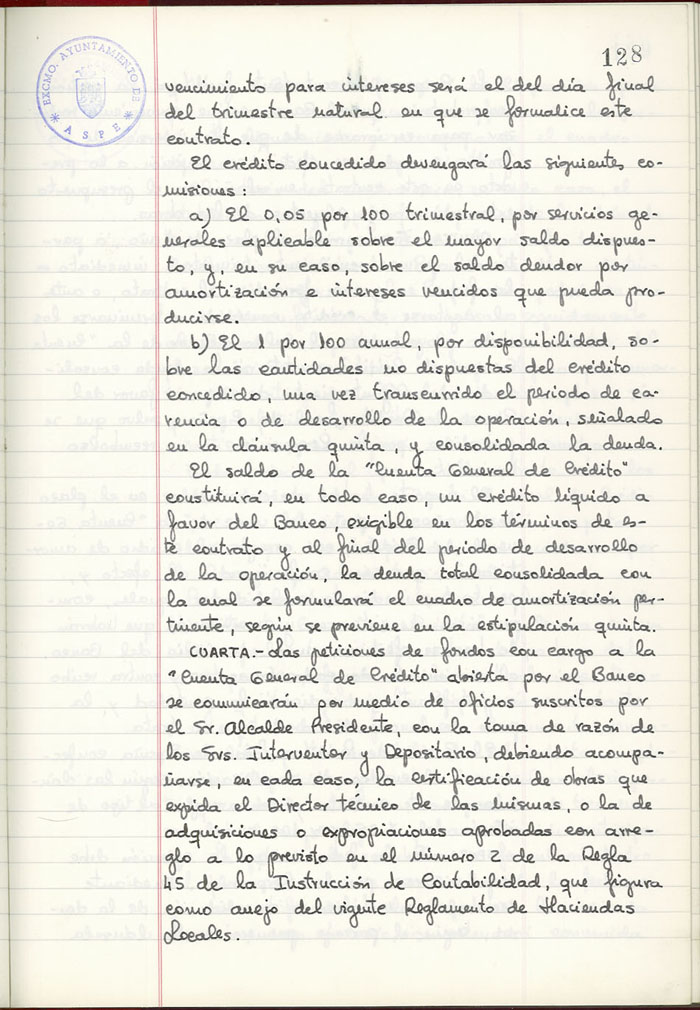 128
EXCMO. AYUNTAMIENTO DE
* ASPE *
vencimiento para intereses será el del día final
del trimestre natural en que se formalice este
contrato.
El crédito concedido devengará las siguientes co-
misiones:
a) El 0,05 por 100 trimestral, por servicios ge-
nerales aplicable sobre el mayor saldo dispues-
to, y, en su caso, sobre el saldo deudor por
amortización e intereses vencidos que pueda pro-
ducirse.
b) El 1 por 100 anual, por disponibilidad, so-
bre las cantidades no dispuestas del crédito
concedido, una vez transcurrido el periodo de ca-
rencia o de desarrollo de la operación, señalado
en la cláusula quinta, y consolidada la deuda.
El saldo de la "Cuenta General de Crédito"
constituirá, en todo caso, un crédito líquido a
favor del Banco, exigible en los términos de es-
te contrato y al final del periodo de desarrollo
de la operación, la deuda total consolidada con
la cual se formulará el cuadro de amortización per-
tinente, según se previene en la estipulación quinta.
CUARTA.- Las peticiones de fondos con cargo a la
"Cuenta General de Crédito" abierta por el Banco
se comunicarán por medio de oficios suscritos por
el Sr. Alcalde Presidente, con la toma de razón de
los Srs. Interventor y Depositario, debiendo acompa-
ñarse, en cada caso, la certificación de obras que
expida el Director técnico de las mismas, o la de
adquisiciones o expropiaciones aprobadas con arre-
glo a lo previsto en el número 2 de la Regla
45 de la Instrucción de Contabilidad, que figura
como anejo del vigente Reglamento de Haciendas
Locales.